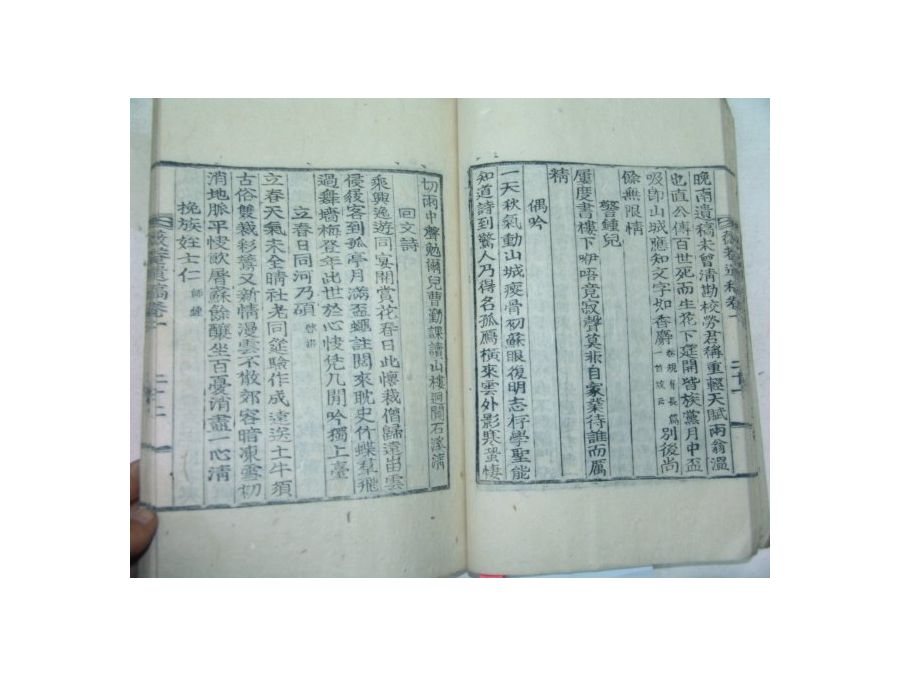 晩南遺稿未曾淸勘校勞君稱重輕天賦兩翁溫
也直公傳百世死而生花下筵開皆族黨月中盃
吸卽山城應知文字如香麝 別後尚
餘無限情
警鍾兒
屢度書樓下咿唔竟寂聲莫非自家業待誰而厲
精
偶吟
一天秋氣動山城瘦骨初蘇眼復明志存學聖能
知道詩到驚人乃得名孤鴈橫來雲外影寒蛩棲
切雨中聲勉爾兒曹勤課讀山樓迥闢石溪淸
回文詩
乘興逸遊同宴開賞花春日此懷裁僧歸遠岫雲
侵後客到孤亭月滿盃蠅註閱來耽史竹蝶羣飛
過舞墻梅登年此世於心悽凭几開吟獨上臺
立春日同河乃碩
立春天氣未全晴社老同筵驗作成遠送土牛須
古俗雙裁彩鷰又新情漫雲不散郊容暗凍雪初
消地脈平悽飮屠蘇餘釀坐百憂消盡一心淸
挽族姪士仁